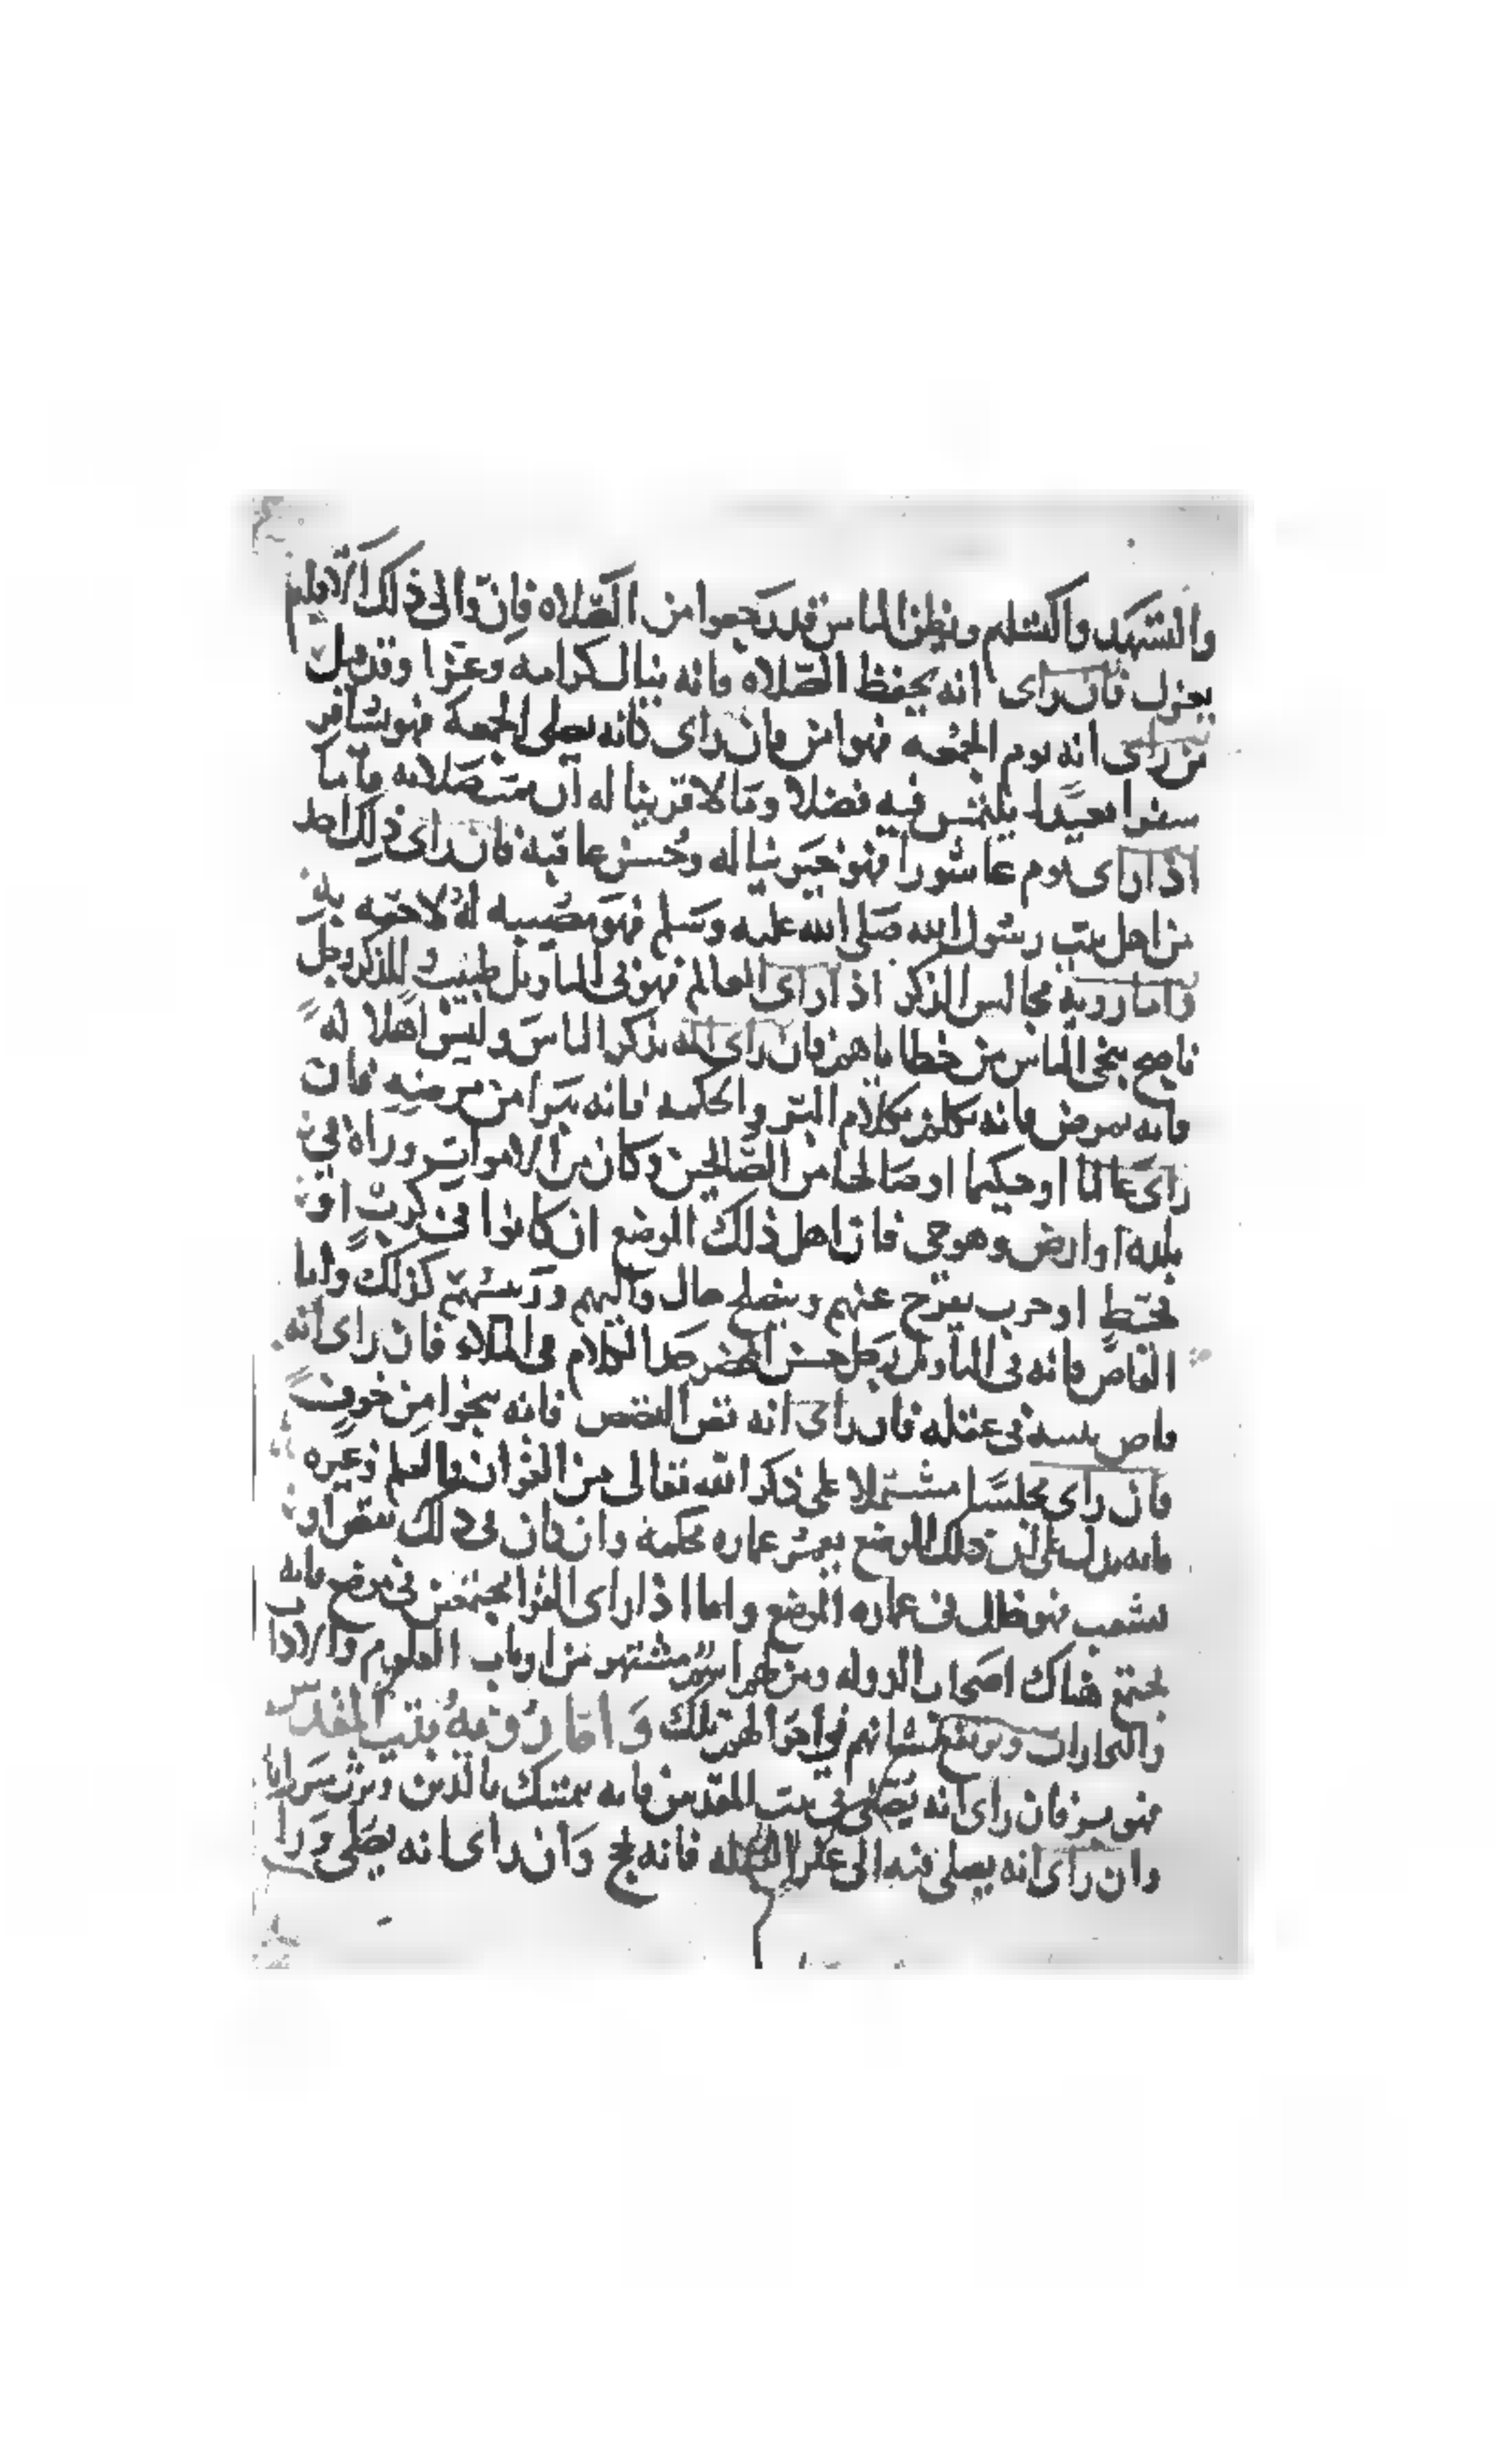 والتشهد والتسليم ويظن الناس قد رجعوا من الصلاه فان والى ذلك الاقليم
يعزل فان راى انه يحفظ الصلاه فانه ينال كرامه وعزا وقد قيل
من راى انه يوم الجمعه فهو امن فان راى كانه يصلى الجمعة فهو يسافر
سفرا بعيدا يلتمس فيه فضلا ومالا ورزقا يناله ان تمت صلاته واما
اذا راى يوم عاشورا فهو خير يناله وحسن عاقبه فان راى ذلك احد
من اهل بيت رسول الله صلى الله عليه وسلم فهو مصيبه له لاحقه به
واما روية مجالس الذكر اذا راى العالم فهو فى التاويل طبيب والمذكر رجل
ناصح ينجى الناس من خطاياهم فان راى انه يذكر الناس وليس اهلا له
فانه يمرض فانه تكلم بكلام البر والحكمه فانه يبرا من مرضه فان
راى عالما او حكيما او صالحا من الصالحين وكان من الاموات وراه فى
بلده او ارض وهو حى فان اهل ذلك الموضع ان كانوا فى كرب او
قحط او حرب يفرج عنهم ويصلح حال واليهم ورئيسهم كذلك واما
القاص فانه فى التاويل رجل حسن المحضر الكلام فى الملا فان راى انه
قاص فى عقله فان راى انه يقص القصص فانه ينجوا من خوف
فان راى مجلسا مشتملا على ذكر الله تعالى من القران والعلم وغيره
فانه يدل على ان ذلك الموضع يعمر عماره محكمة وان كان فى ذلك نقص او
تشعب فهو خلل فى عماره الموضع واما اذا راى القرا مجتمعين فى موضع فانه
يجتمع هناك اصحاب الدوله ومن لهم اسم مشتهر من ارباب العلوم والاداب
والتجارات ويرتفع شانهم واما رؤية بيت المقدس
فان راى انه يصلى فى بيت المقدس فانه يمتسك بالدين ويرث ميراثا
وان راى انه يصلى فيه الى غير القبله فانه يحج وان راى انه يصلى